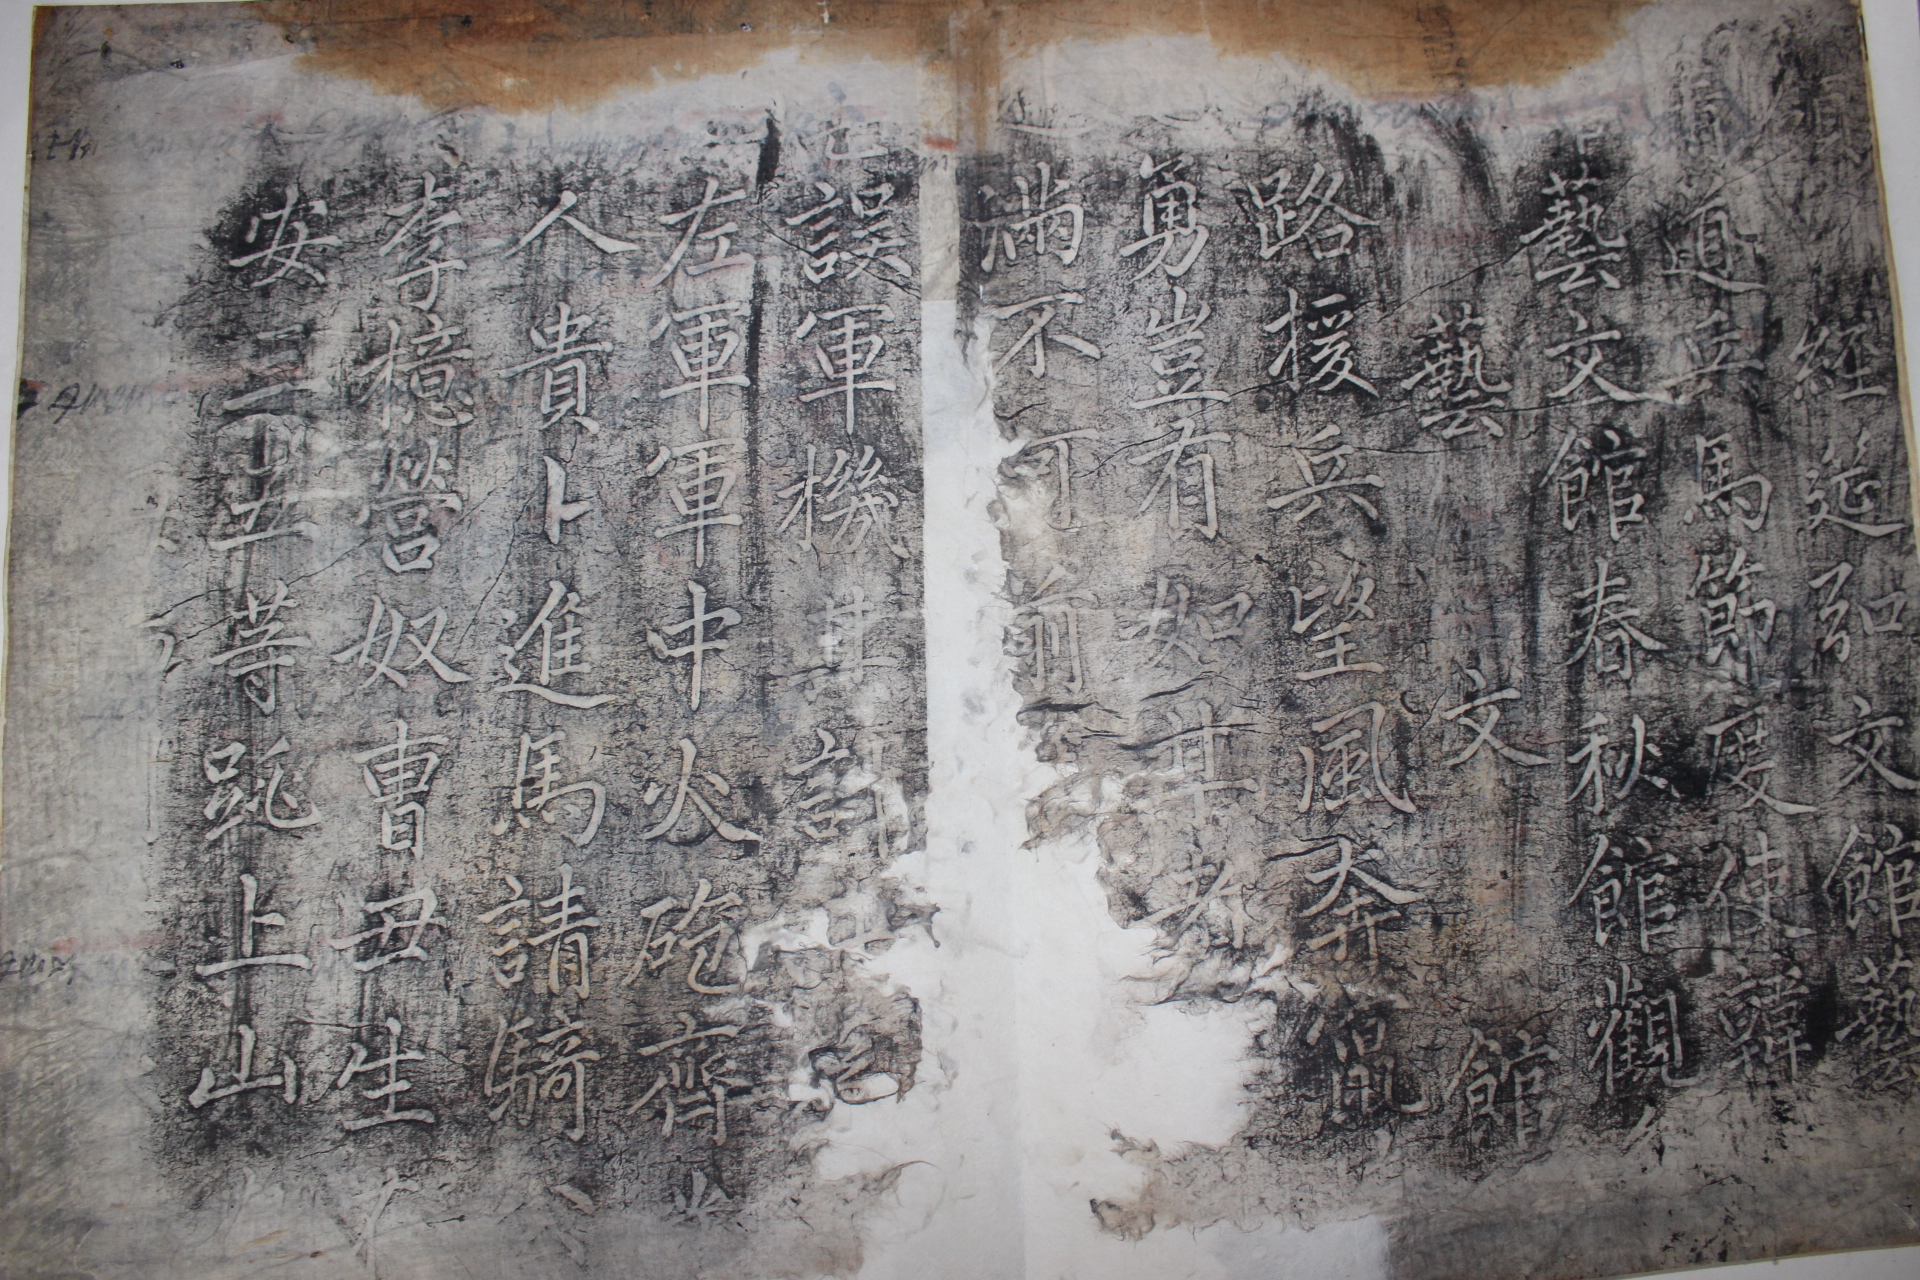 經筵弘文館藝
道兵馬節度使韓
藝文館春秋館觀
藝文館
路援兵望風奔竄
勇豈有如其者
滿不可前
誤軍機其討
左軍軍中火砲齊
人貴卜進馬請騎
李檍營奴曹丑生
安三丑等跳上山